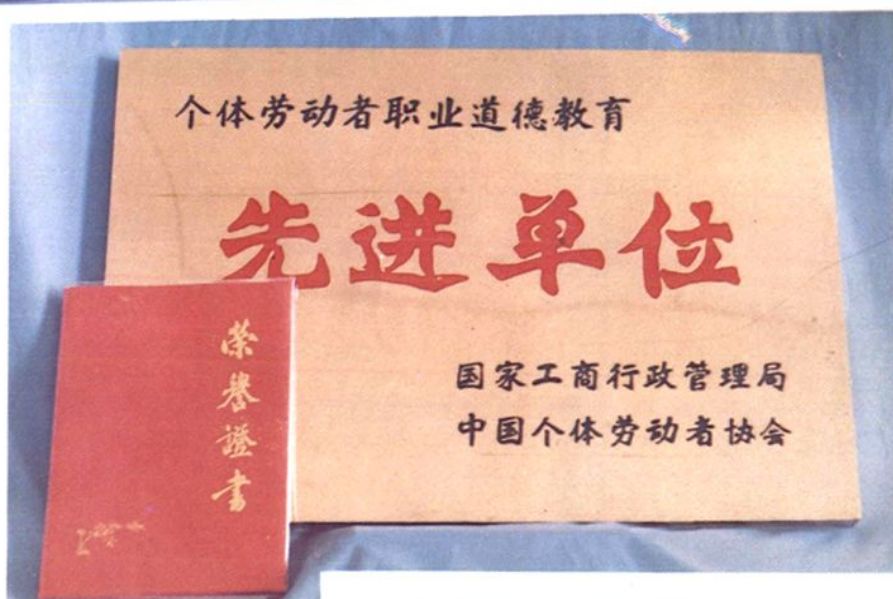 个体劳动者职业道德教育
先进单位
国家工商行政管理局
中国个体劳动者协会
荣誉證书